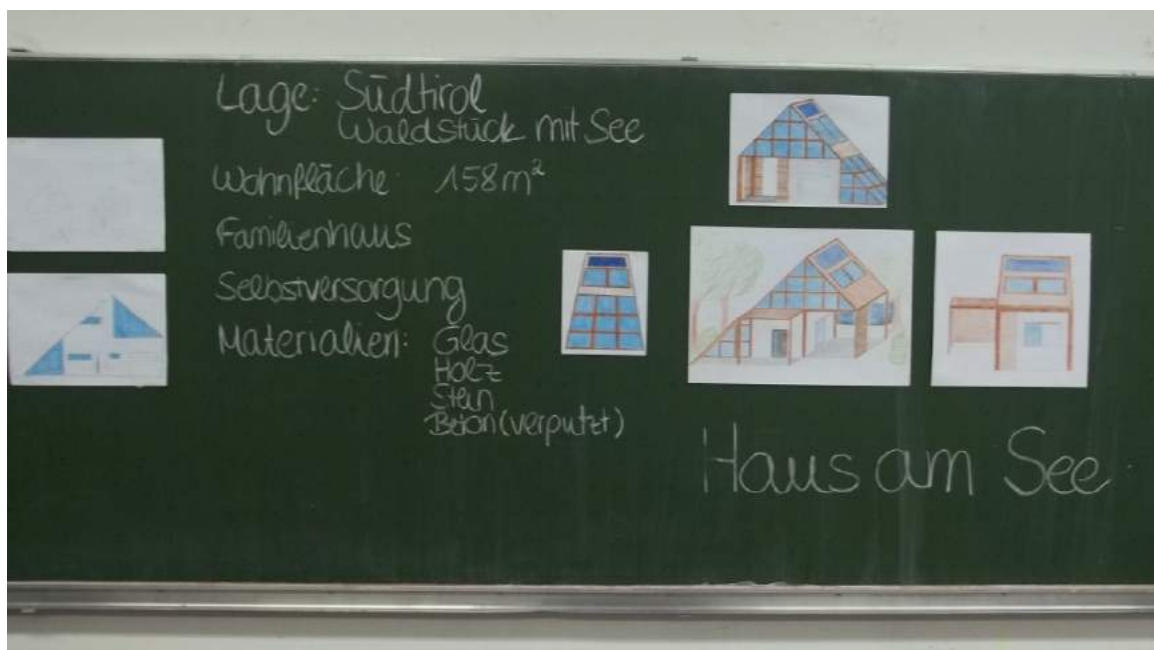 Lage: Südtirol
Waldstück mit See
Wohnfläche: 158m²
Familienhaus
Selbstversorgung
Materialien: Glas
Holz
Stein
Beton (verputzt)
Haus am See